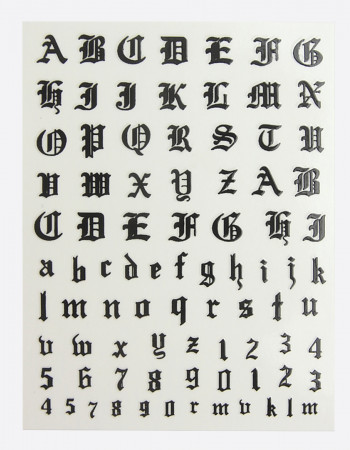 A B C D E F G
H I J K L M N
O P Q R S T U
V W X Y Z A B
C D E F G H I
a b c d e f g h i j k
l m n o q r s t u
v w x y z 1 2 3 4
5 6 7 8 9 0 1 2 3
4 5 7 8 9 0 r m v k l m